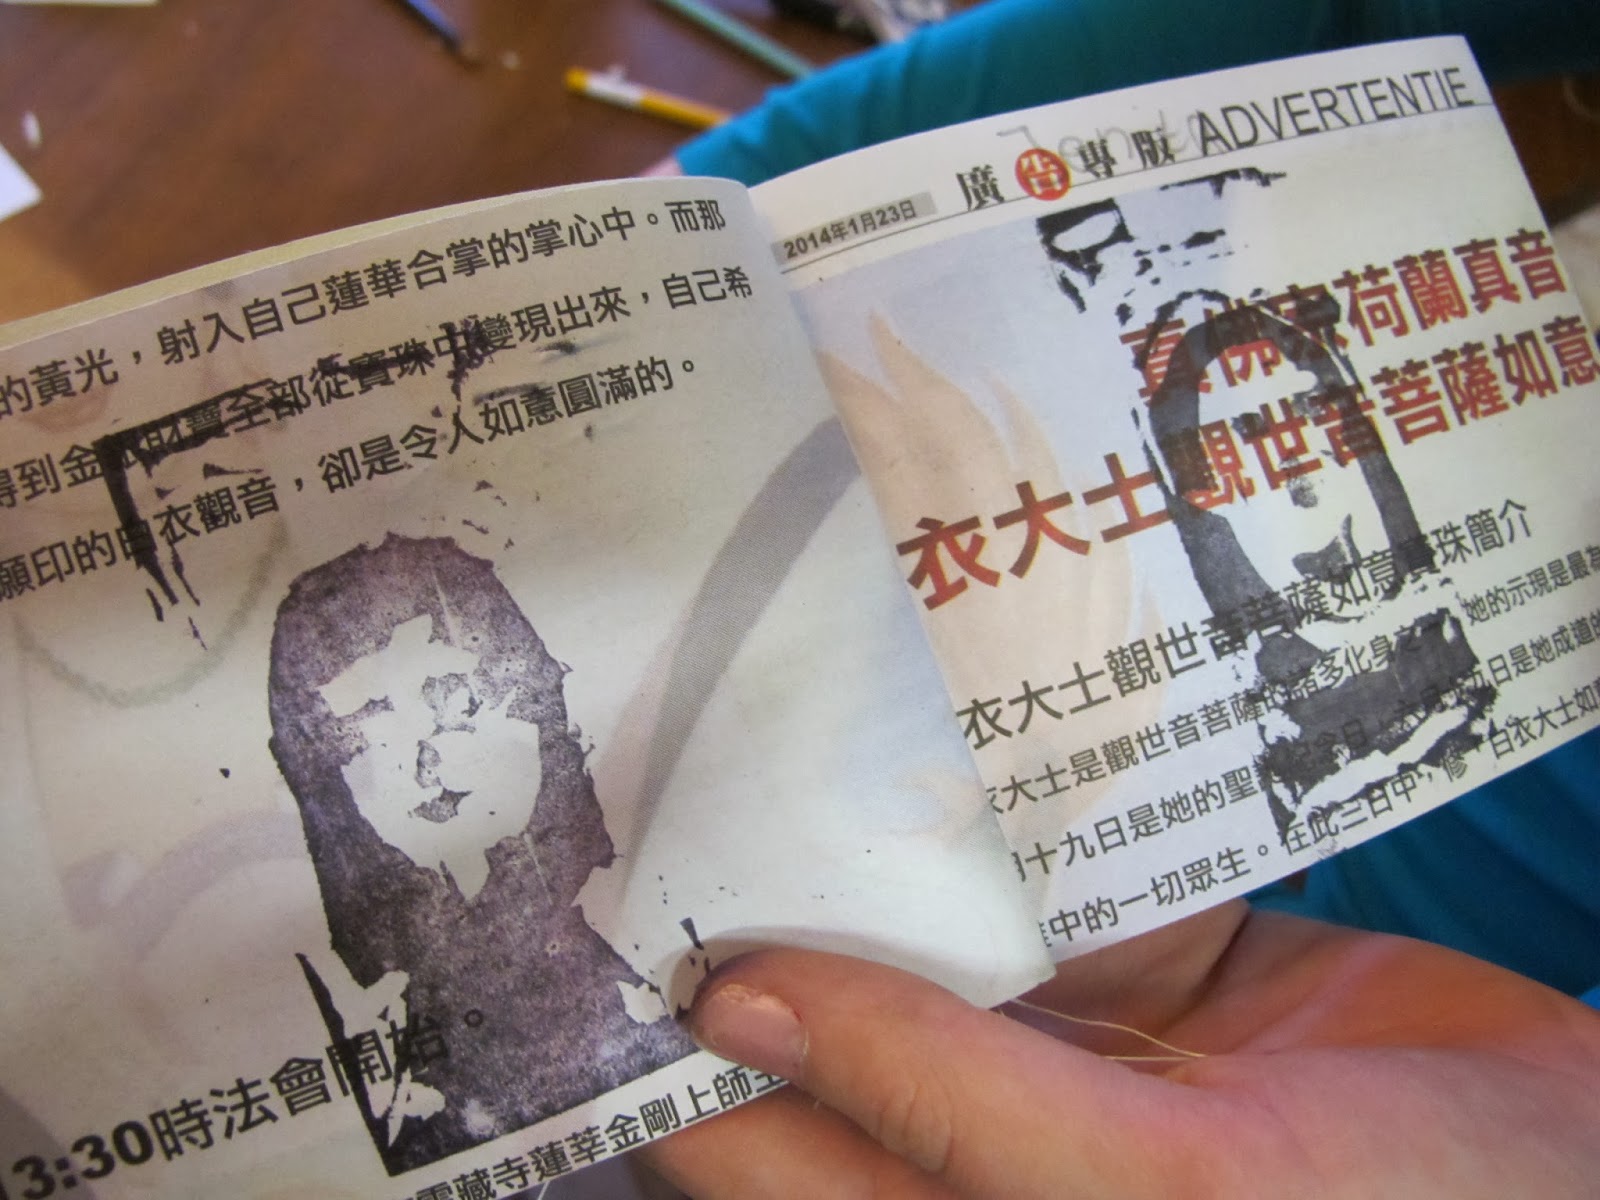 的黃光，射入自己蓮華合掌的掌心中。而那
得到金 財寶全部從寶珠中變現出來，自己希
願印的白衣觀音，卻是令人如意圓滿的。
3:30時法會開始。
雷藏寺蓮莘金剛上師主
廣告專版 ADVERTENTIE
2014年1月23日
真佛宗荷蘭真音
衣大士觀世音菩薩如意
衣大士觀世音菩薩如意寶珠簡介
衣大士是觀世音菩薩的諸多化身之 她的示現是最為
月十九日是她的聖 今日，六月十九日是她成道的
中的一切眾生。在此三日中，修「白衣大士如意